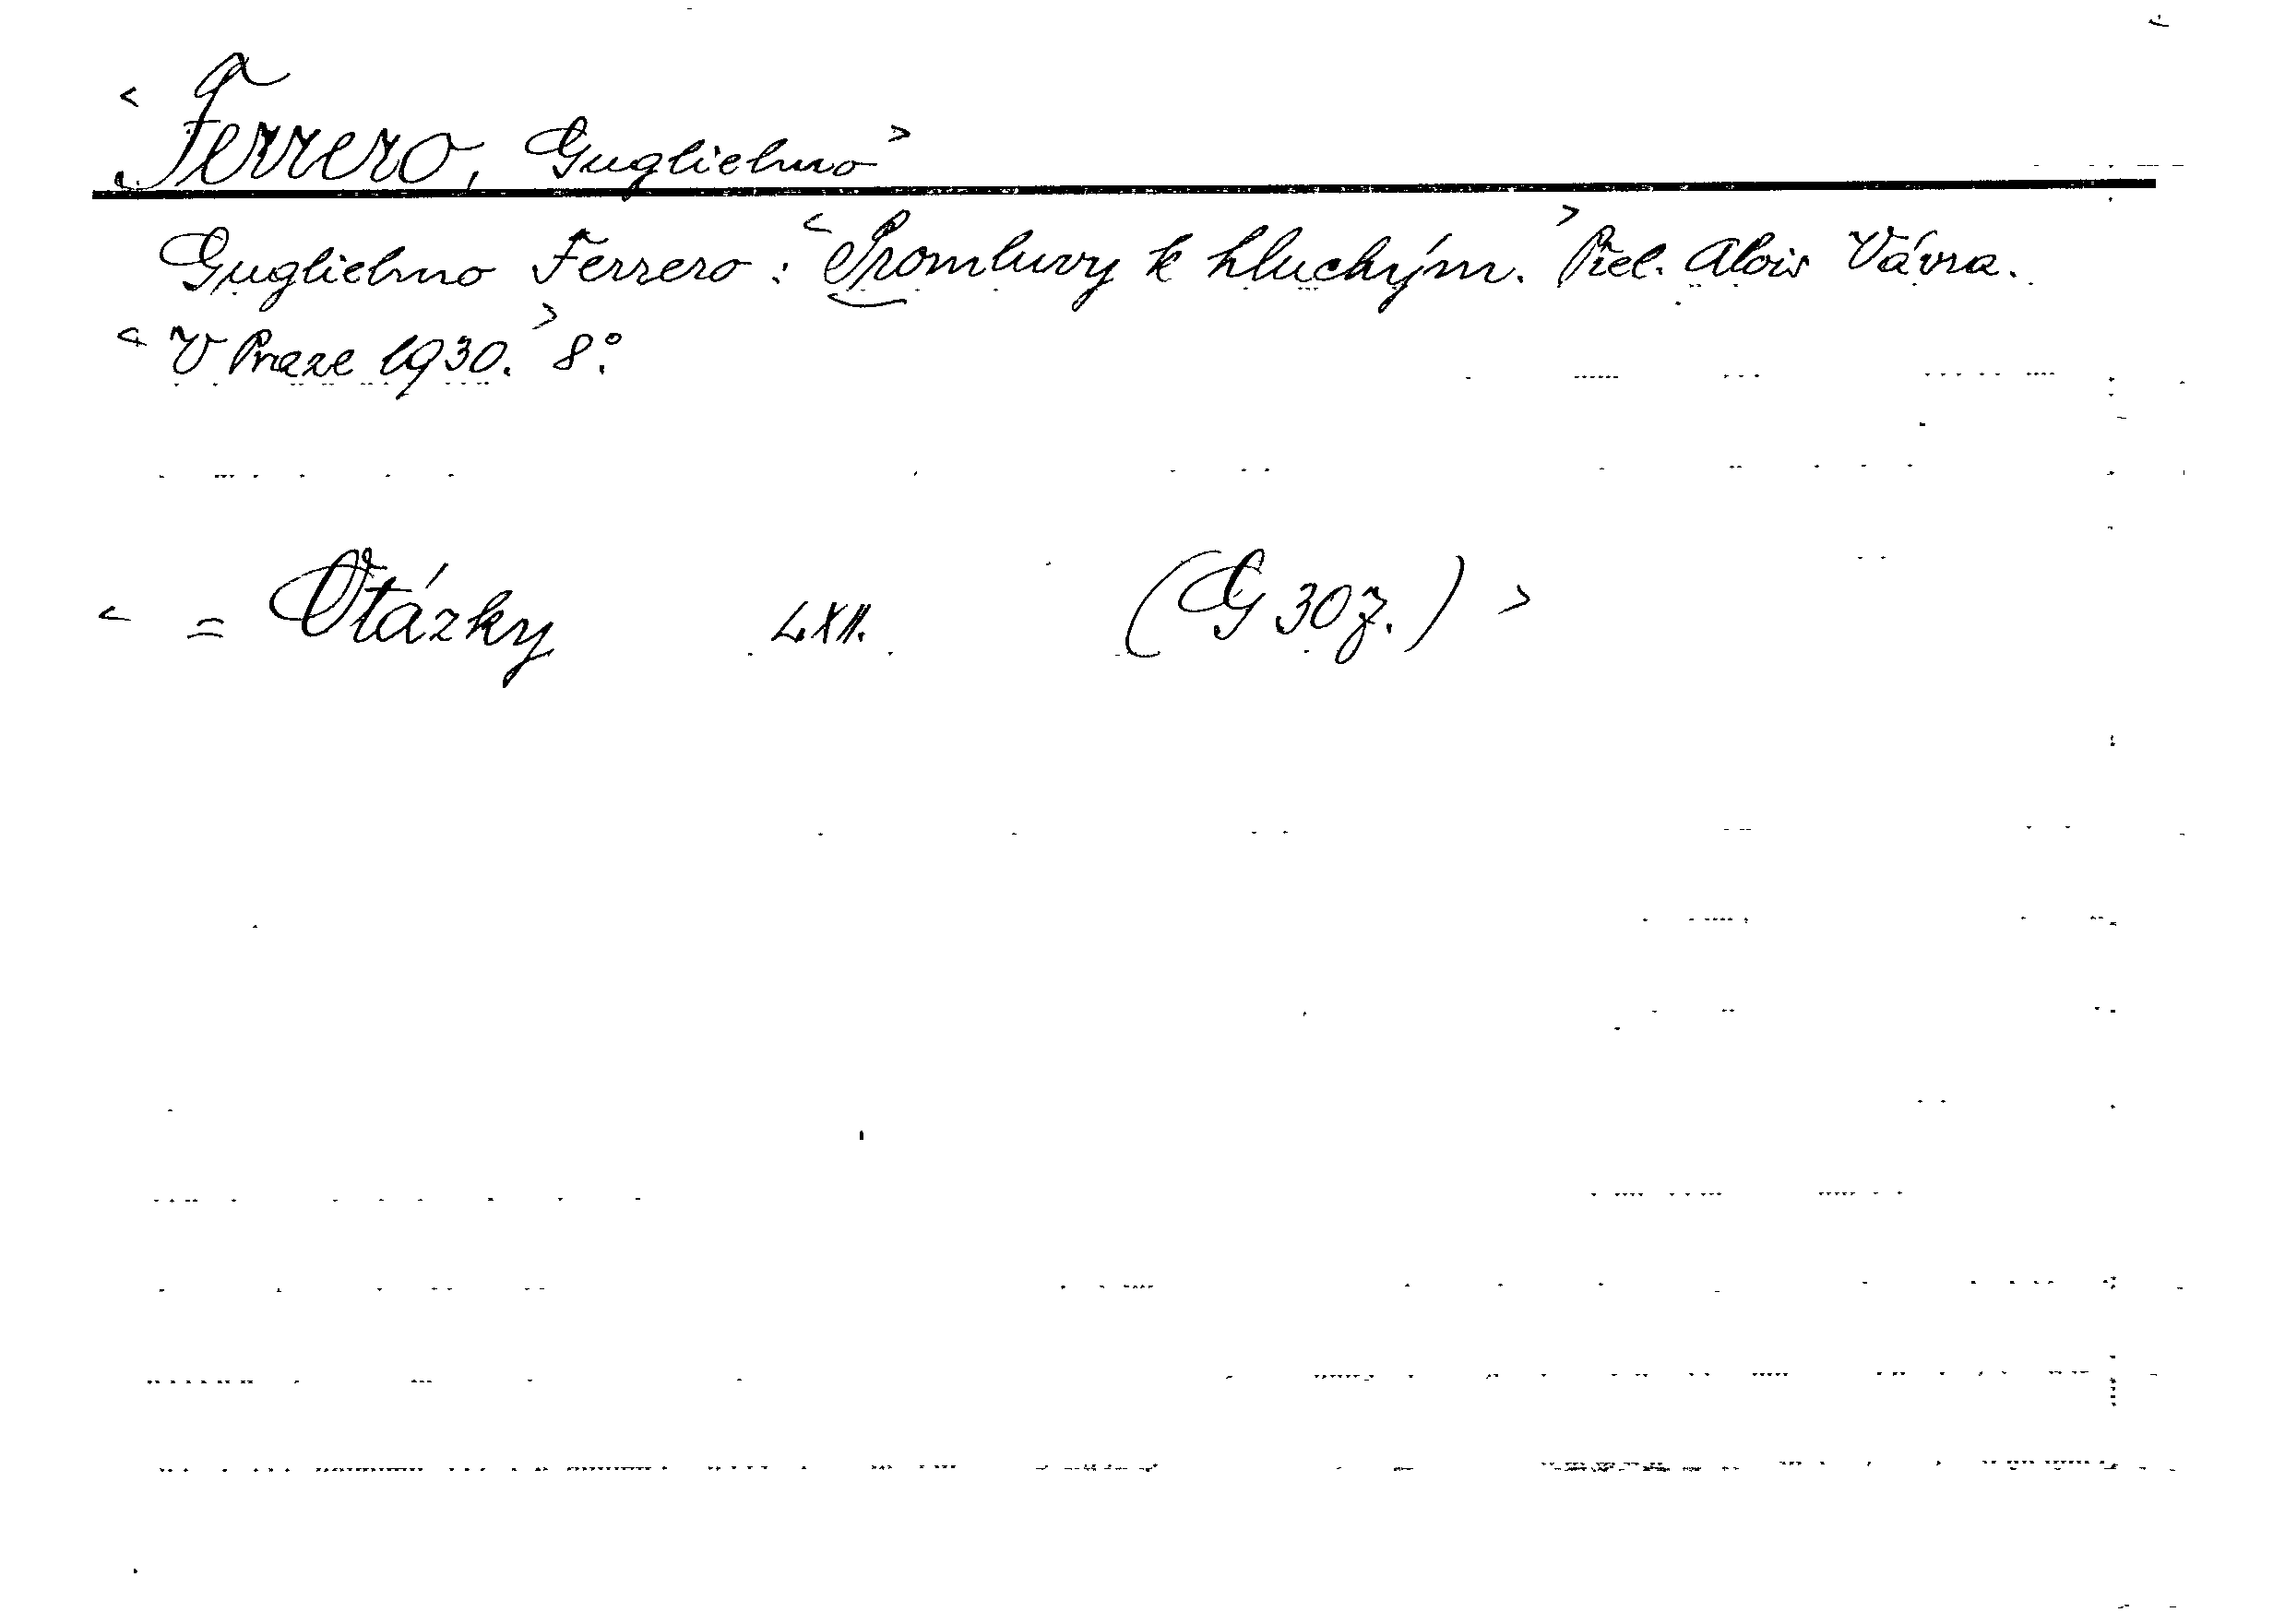 < Ferrero, Guglielmo >
Guglielmo Ferrero: < Promluvy k hluchým. > Přel. Alois Vávra.
< V Praze 1930. > 8°.
< = Otázky LXII. (G 307.) >